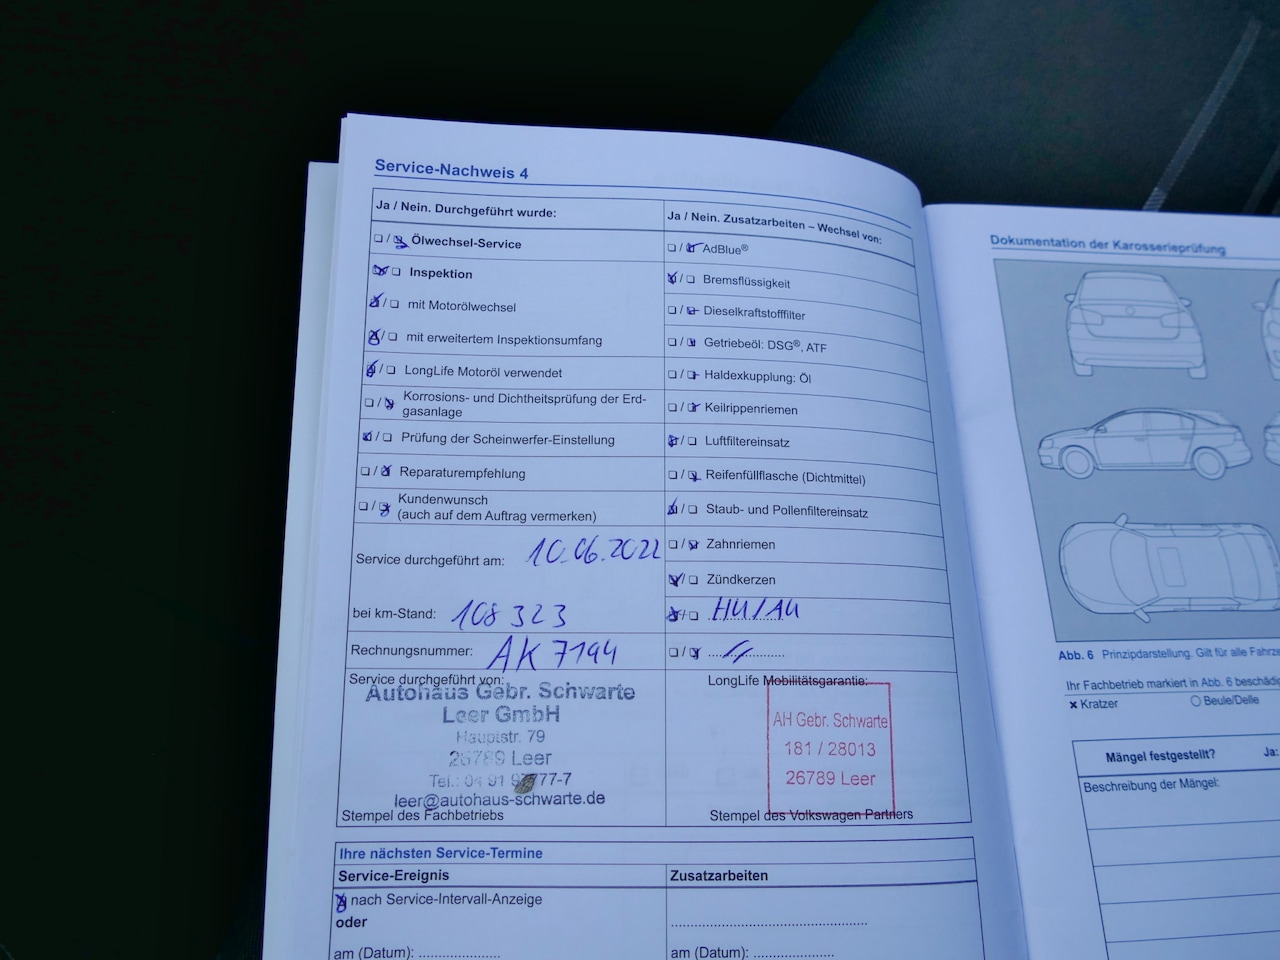 Service-Nachweis 4
Ja / Nein. Durchgeführt wurde:
Ölwechsel-Service
Inspektion
mit Motorölwechsel
mit erweitertem Inspektionsumfang
LongLife Motoröl verwendet
Korrosions- und Dichtheitsprüfung der Erd-
gasanlage
Prüfung der Scheinwerfer-Einstellung
Reparaturempfehlung
Kundenwunsch
(auch auf dem Auftrag vermerken)
Service durchgeführt am: 10.06.2022
bei km-Stand: 108 323
Rechnungsnummer: AK 7194
Service durchgeführt von:
Autohaus Gebr. Schwarte
Leer GmbH
Hauptstr. 79
26789 Leer
Tel.: 04 91 77-7
leer@autohaus-schwarte.de
Stempel des Fachbetriebs
Ja / Nein. Zusatzarbeiten – Wechsel von:
AdBlue®
Bremsflüssigkeit
Dieselkraftstofffilter
Getriebeöl: DSG®, ATF
Haldexkupplung: Öl
Keilrippenriemen
Luftfiltereinsatz
Reifenfüllflasche (Dichtmittel)
Staub- und Pollenfiltereinsatz
Zahnriemen
Zündkerzen
HU/AU
LongLife Mobilitätsgarantie:
AH Gebr. Schwarte
181 / 28013
26789 Leer
Stempel des Volkswagen Partners
Ihre nächsten Service-Termine
Service-Ereignis
Zusatzarbeiten
nach Service-Intervall-Anzeige
oder
am (Datum): ....................
am (Datum): ....................
Dokumentation der Karosserieprüfung
Abb. 6 Prinzipdarstellung. Gilt für alle
Ihr Fachbetrieb markiert in Abb. 6
Kratzer
Beule/Delle
Mängel festgestellt? Ja:
Beschreibung der Mängel: